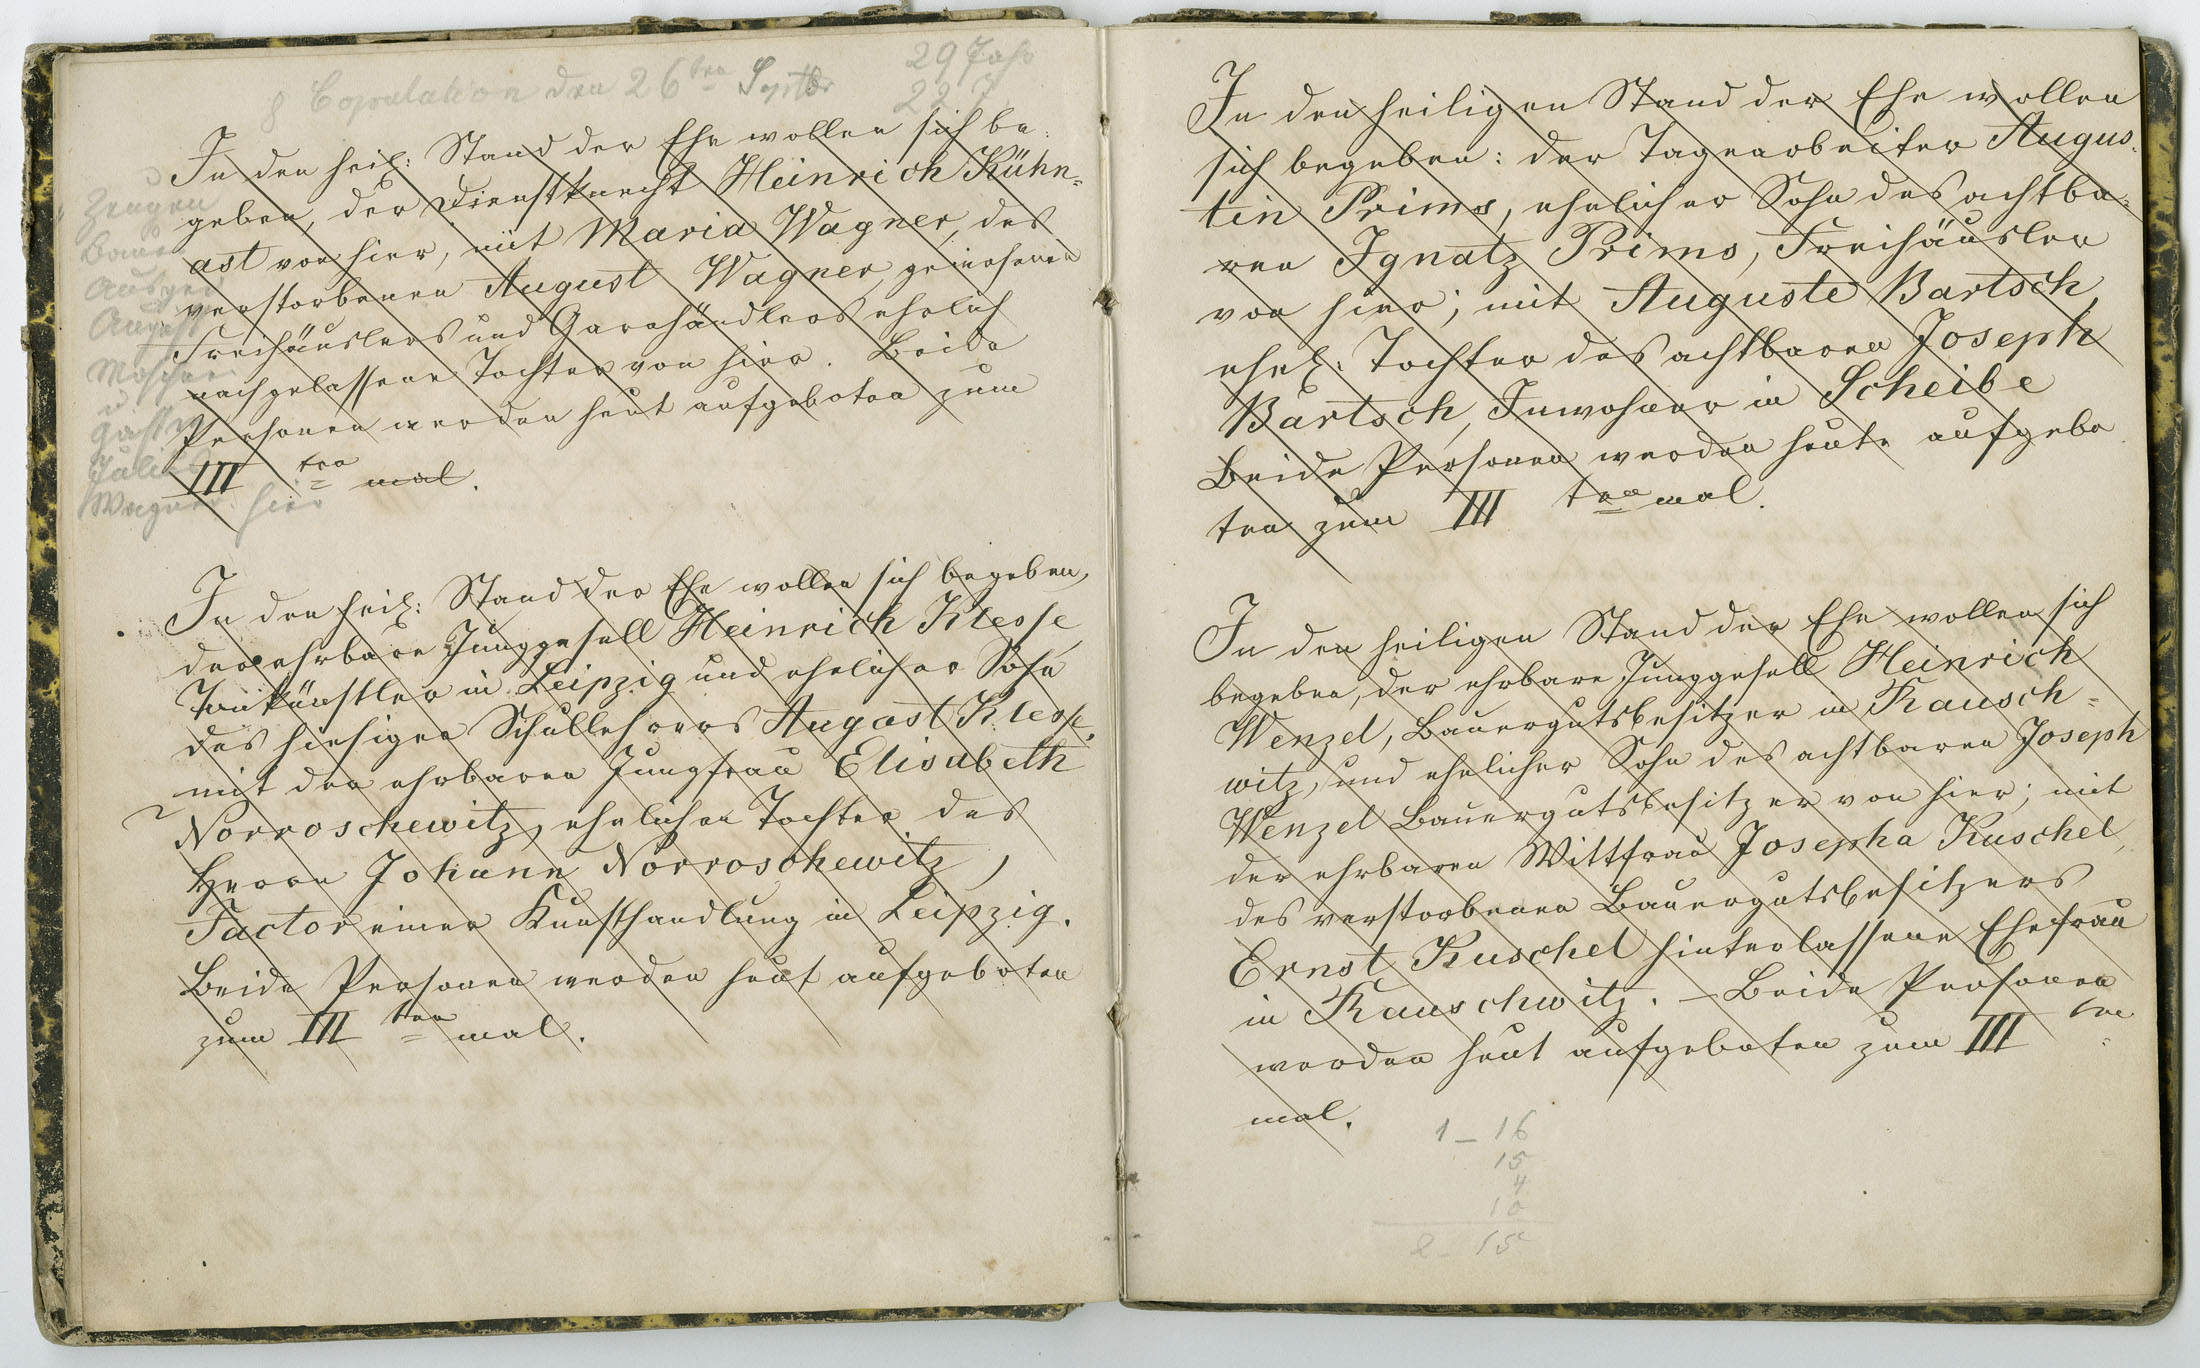 8 Copulation den 26ten Septbr 29 Jahr
22 J
In den heil: Stand der Ehe wollen sich be-
geben, der Dienstknecht Heinrich Kühn=
ast von hier, mit Maria Wagner, des
verstorbenen August Wagner, gewesenen
Freihäuslers und Garnhändlers ehelich
nachgelassene Tochter von hier. Beide
Personen werden heut aufgeboten zum
III ten mal.
Zeugen
Bauer
August
Julius
Wagner hier
In den heil: Stand der Ehe wollen sich begeben,
der ehrbare Junggesell Heinrich Klesse,
Tonkünstler in Leipzig und ehelicher Sohn
des hiesigen Schullehrers August Klesse,
mit der ehrbaren Jungfrau Elisabeth
Norroschewitz, ehelichen Tochter des
Herrn Johann Norroschewitz,
Factor einer Kunsthandlung in Leipzig.
Beide Personen werden heut aufgeboten
zum III ten mal.
In den heiligen Stand der Ehe wollen
sich begeben: der Tagearbeiter Augus-
tin Prims, ehelicher Sohn des achtba-
ren Ignatz Prims, Freihäusler
von hier; mit Auguste Bartsch,
ehel: Tochter des achtbaren Joseph
Bartsch, Inwohner in Scheibe
Beide Personen werden heute aufgebo
ten zum III ten mal.
In den heiligen Stand der Ehe wollen sich
begeben, der ehrbare Junggesell Heinrich
Wenzel, Bauergutsbesitzer in Rausch=
witz, und ehelicher Sohn des achtbaren Joseph
Wenzel Bauergutsbesitzer von hier; mit
der ehrbaren Wittfrau Josepha Kuschel,
des verstorbenen Bauergutsbesitzers
Ernst Kuschel hinterlassene Ehefrau
in Rauschwitz. – Beide Personen
werden heut aufgeboten zum III ten
mal.
1 – 16
15
4
10
2 – 15